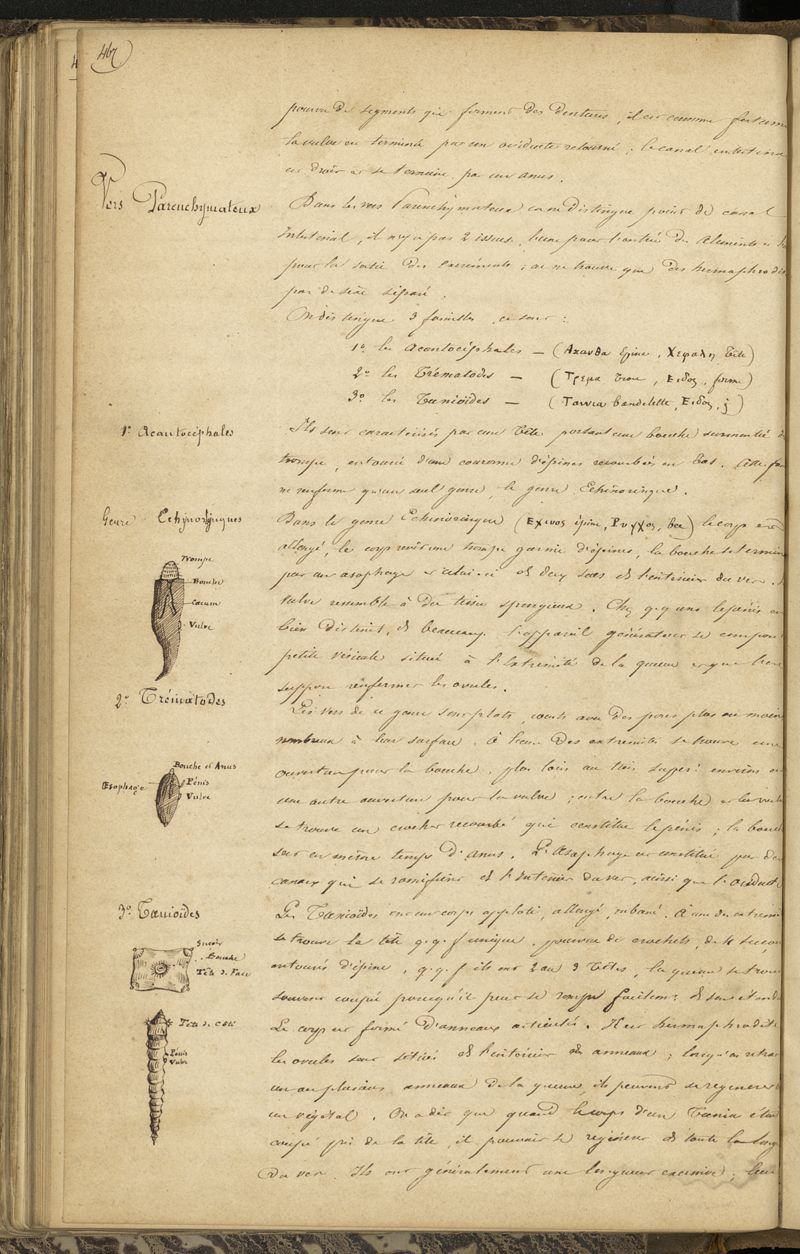 467
pourvu de segments qui forment des dentures, il est comme
la vulve est terminée par un oviducte retourné; le canal intestinal
est droit et se termine par un anus.
Vers Parenchymateux
Dans les vers Parenchymateux on ne distingue point de canal
Intestinal, il n'y a pas 2 issues, l'une pour l'entrée des aliments et
pour la sortie des excréments; on ne trouve que des hermaphrodi
pas de sexe séparé.
On distingue 3 familles, ce sont:
1° les Acantocéphales — (Ακανθα épine, Χεφαλη tête)
2° les Trématodes — (Τρεμα trou, Ειδος, forme)
3° les Tænioïdes — (Ταινια bandelette, Ειδος, f)
1° Acantocéphales
Ils sont caractérisés par une tête portant une bouche surmontée d
trompe, entourée d'une couronne d'épines recourbées en bas. Cette fa
ne renferme qu'un seul genre, le genre Echinorinque.
Genre Echynorhynques
Dans le genre Echinorinque (Εχινος épine, Ρυγχος, bec) le corps est
allongé, le corps revêt une trompe garnie d'épines, la bouche se termine
par un œsophage et celui-ci et deux sacs et l'intérieur du ver.
vulve ressemble à du tissu spongieux. Chez q.q. uns le pénis est
bien distinct, et beaucoup l'appareil générateur se compose
petite vésicule située à l'extrémité de la queue et que l'on
suppose renfermer les ovules.
Trompe
Bouche
Cæcum
Vulve
2° Trématodes
Les vers de ce genre sont plats, courts avec des pores plus ou moins
nombreux à leur surface. à l'une des extrémités se trouve une
ouverture pour la bouche, plus loin au tiers supér! environ est
une autre ouverture pour la vulve; entre la bouche et la vulve
se trouve un crochet recourbé qui constitue le pénis; la bouche
sert en même temps d'anus. L'œsophage est constitué par des
canaux qui se ramifient et l'intérieur du ver, ainsi que l'oviducte
Bouche et Anus
Œsophage
Pénis
Vulve
3° Tænioïdes
Les Tænioïdes ont un corps applati, allongé, rubané. à une des extrémi
se trouve la tête q.q.f unique, pourvue de crochets, de 4 suçoirs
entourés d'épine, q.q.f ils ont 2 ou 3 têtes, la queue se trouve
souvent coupée parce qu'il peut se rompre facilem! et sans
Le corps est formé d'anneaux articulés. Il est hermaphrodite
les ovules sont situés et l'intérieur des anneaux; lorsqu'on retran
un ou plusieurs anneaux de la queue, ils peuvent se régénérer
un végétal. On a dit que quand le corps d'un Tænia étai
coupé près de la tête, il pouvait se régénérer et toute la long
du ver. Ils ont généralement une longueur excessive; leur
Suçoir
Bouche
Tête de Face
Tête de Côté
Pénis
Vulve